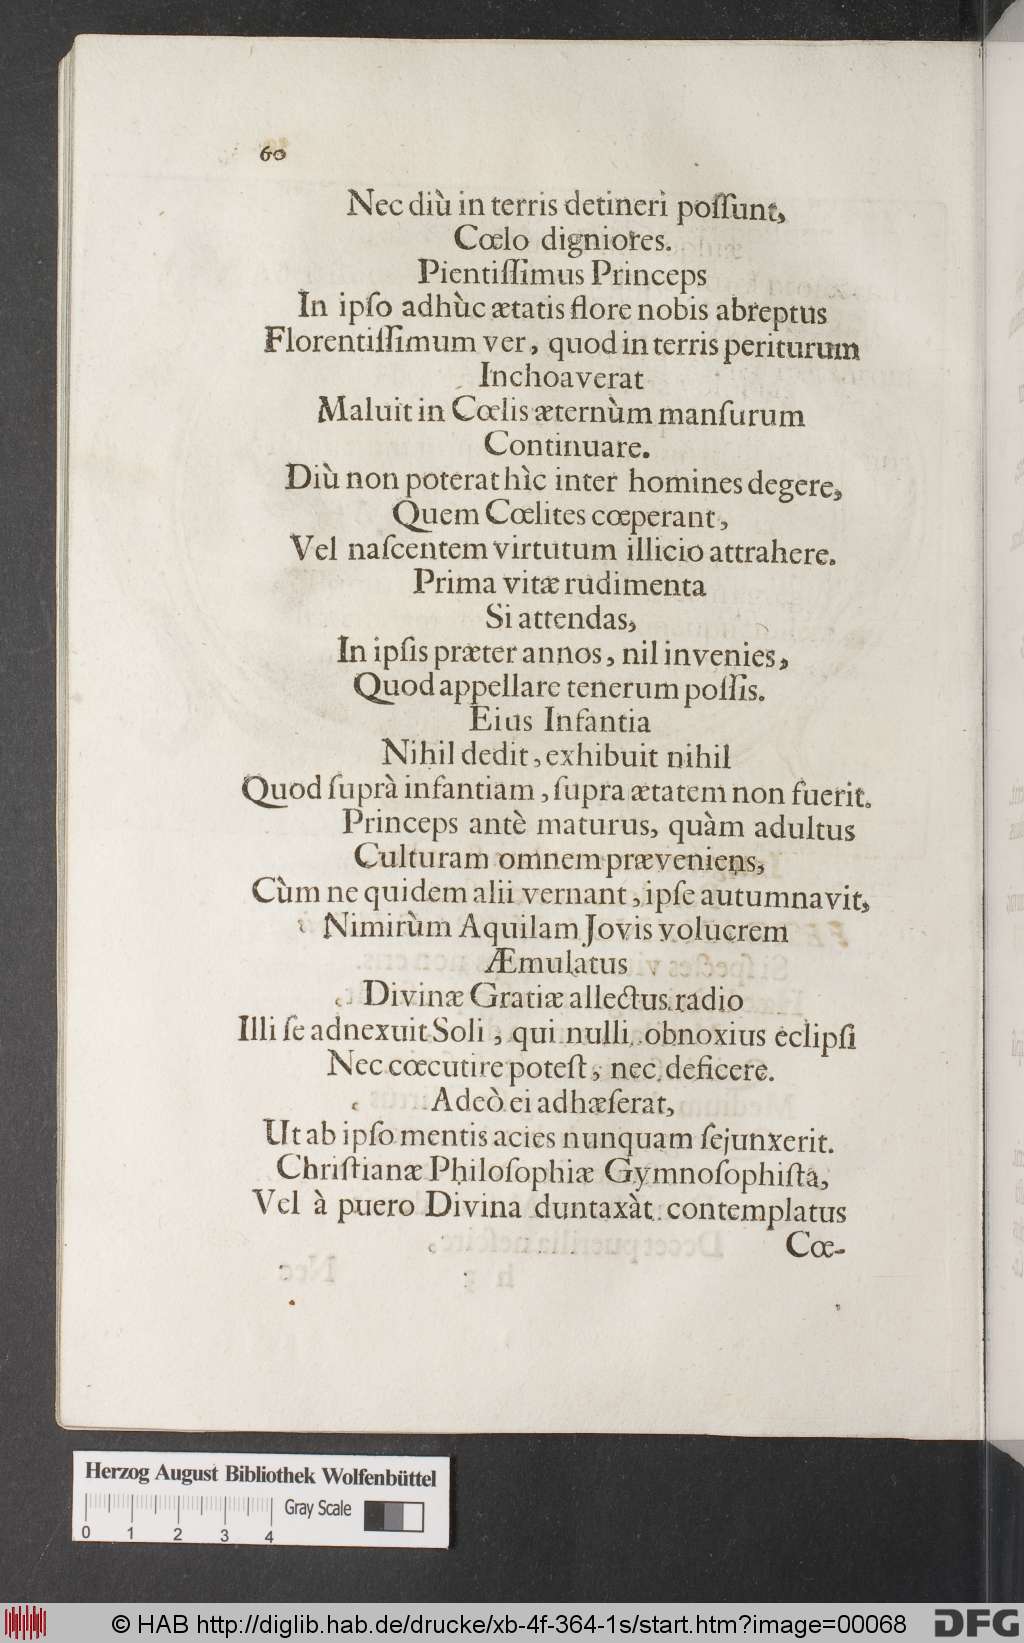 60
Nec diù in terris detineri poſſunt,
Cœlo digniores.
Pientiſſimus Princeps
In ipſo adhùc ætatis flore nobis abreptus
Florentiſſimum ver, quod in terris periturum
Inchoaverat
Maluit in Cœlis æternùm manſurum
Continuare.
Diù non poterat hìc inter homines degere,
Quem Cœlites cœperant,
Vel naſcentem virtutum illicio attrahere.
Prima vitæ rudimenta
Si attendas,
In ipſis præter annos, nil invenies,
Quod appellare tenerum poſſis.
Eius Infantia
Nihil dedit, exhibuit nihil
Quod ſuprà infantiam, ſupra ætatem non fuerit.
Princeps antè maturus, quàm adultus
Culturam omnem præveniens,
Cùm ne quidem alii vernant, ipſe autumnavit,
Nimirùm Aquilam Jovis volucrem
Æmulatus
Divinæ Gratiæ allectus radio
Illi ſe adnexuit Soli, qui nulli obnoxius eclipſi
Nec cœcutire poteſt, nec deficere.
Adeò ei adhæſerat,
Ut ab ipſo mentis acies nunquam ſejunxerit.
Chriſtianæ Philoſophiæ Gymnoſophiſta,
Vel à puero Divina duntaxàt contemplatus
Cœ-
Herzog August Bibliothek Wolfenbüttel
Gray Scale
0 1 2 3 4
© HAB http://diglib.hab.de/drucke/xb-4f-364-1s/start.htm?image=00068
DFG